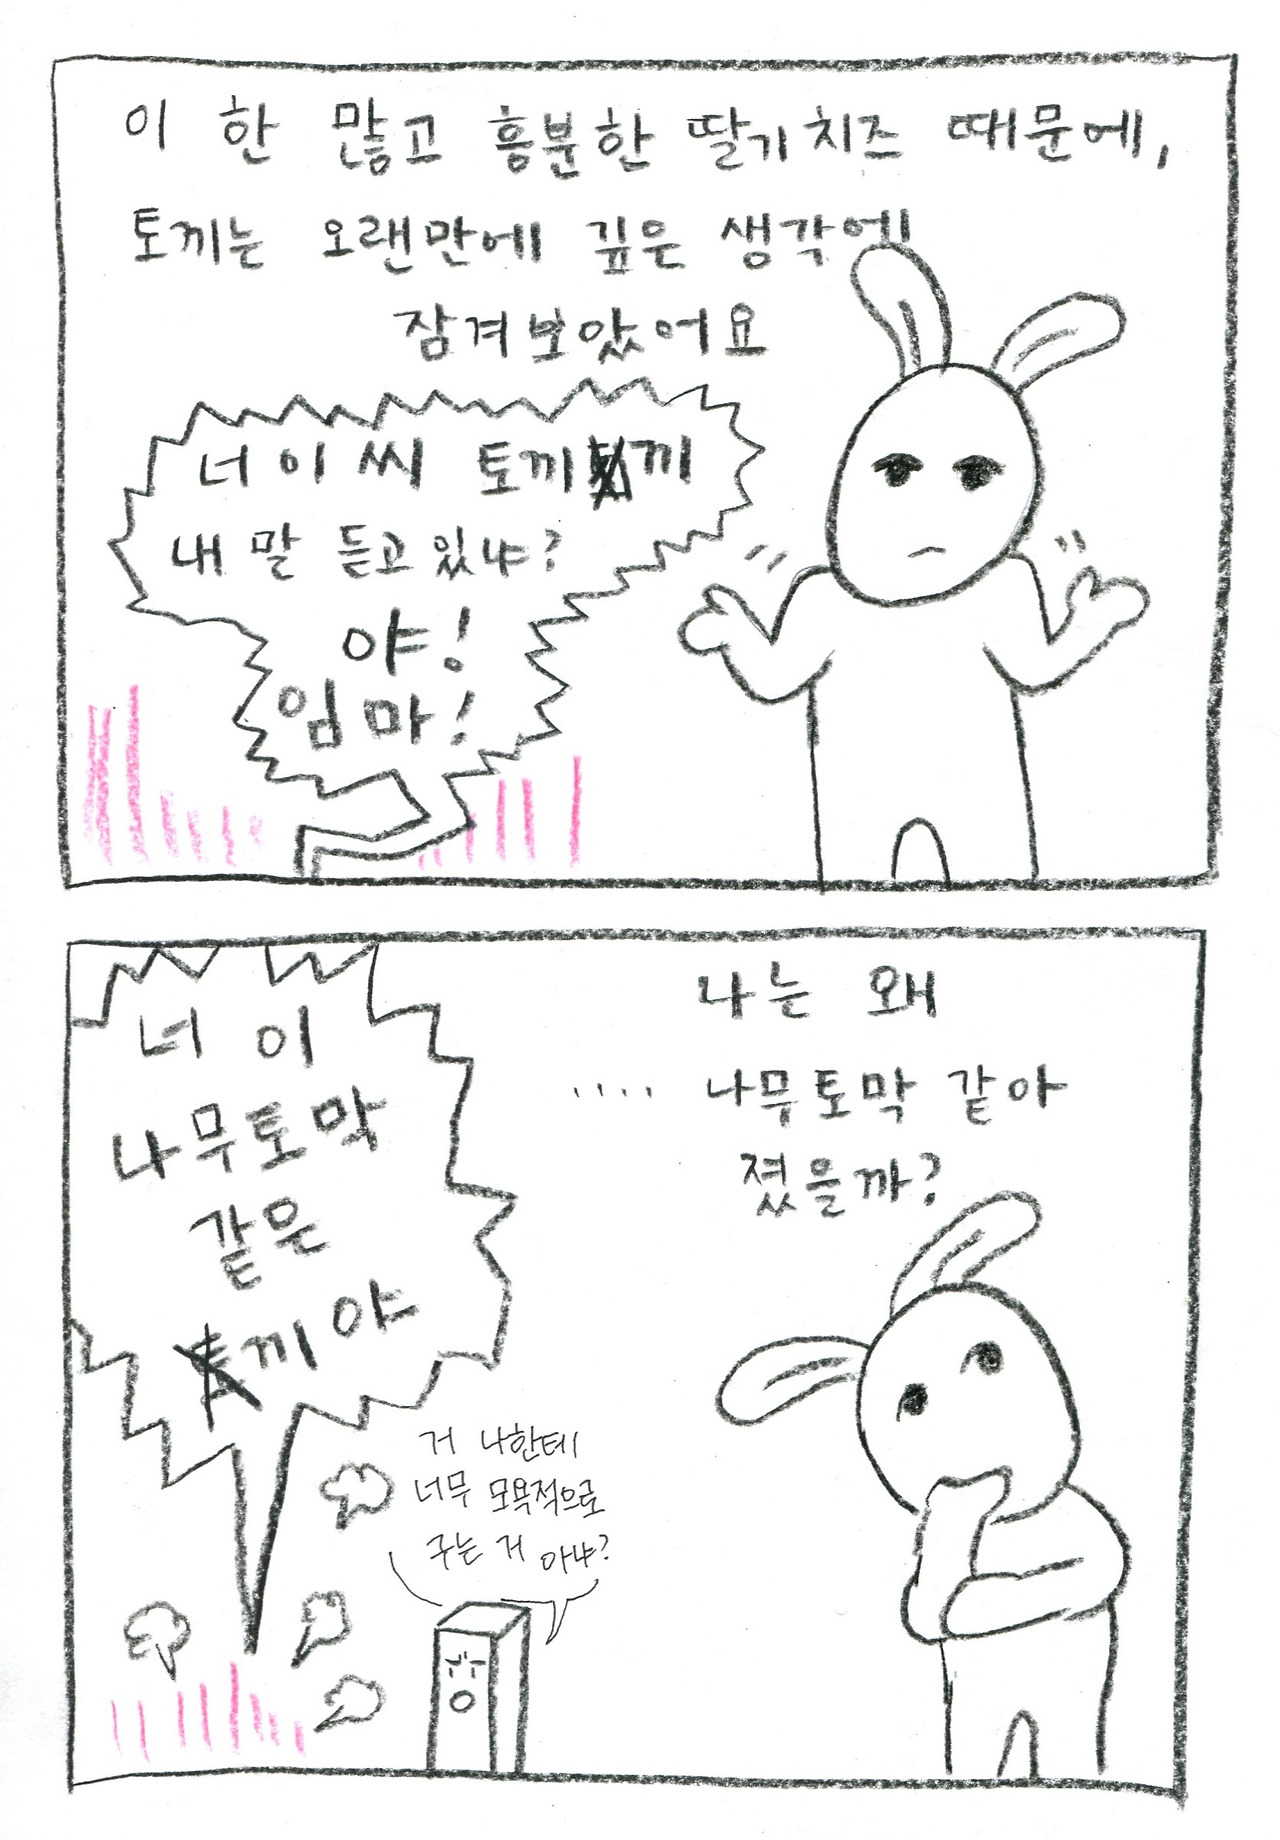 이 한 많고 흥분한 딸기치즈 때문에,
토끼는 오랜만에 깊은 생각에
잠겨보았어요
너 이 씨 토끼 끼
내 말 듣고 있냐?
야!
임마!
나는 왜
.... 나무토막 같아
졌을까?
너 이
나무토막
같은
끼야
거 나한테
너무 모욕적으로
구는 거 아냐?